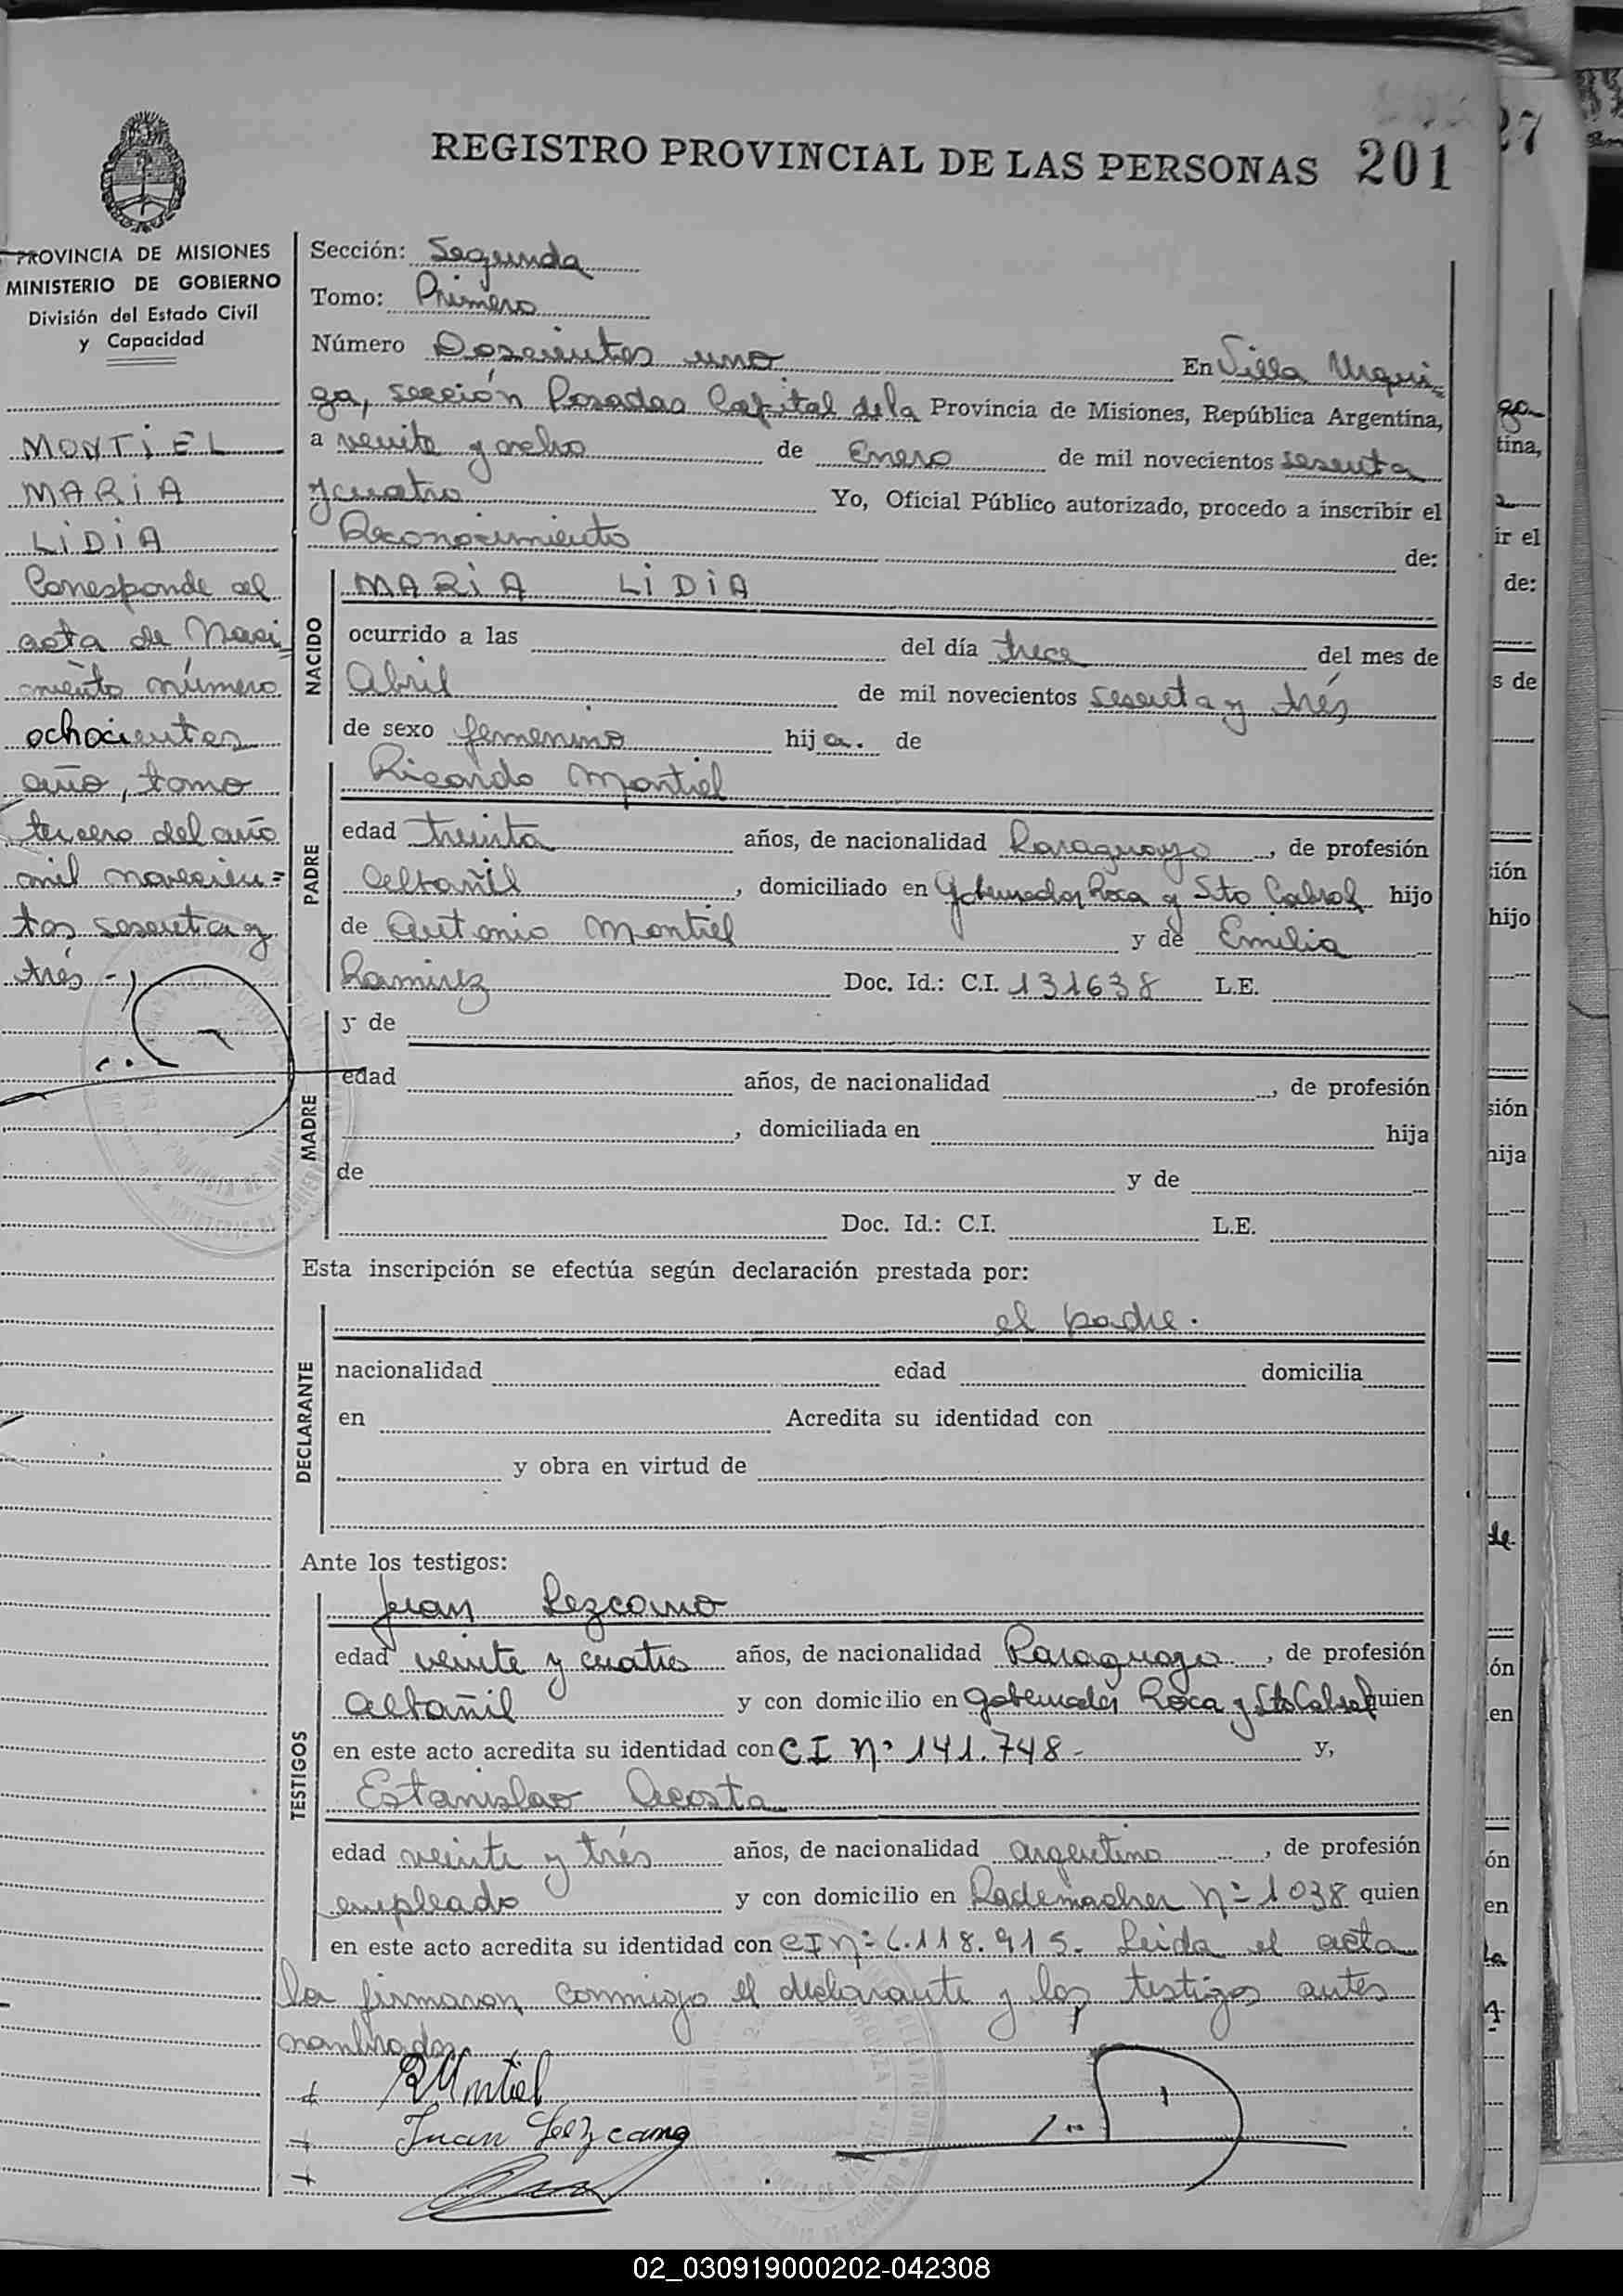 REGISTRO PROVINCIAL DE LAS PERSONAS 201
PROVINCIA DE MISIONES
MINISTERIO DE GOBIERNO
División del Estado Civil
y Capacidad
MONTiEL
MARiA
LiDiA
Corresponde al
acta de Naci
miento número
ochocientos
año, tomo
tercero del año
mil novecien=
tos sesenta y
trés -
Sección: Segunda
Tomo: Primero
Número Doscientos uno En Villa Urqui
za, sección Posadas Capital de la Provincia de Misiones, República Argentina,
a veinte y ocho de Enero de mil novecientos sesenta
y cuatro Yo, Oficial Público autorizado, procedo a inscribir el
Reconocimiento de:
NACIDO
MARiA LiDiA
ocurrido a las del día trece del mes de
Abril de mil novecientos sesenta y trés
de sexo femenino hij a. de
PADRE
Ricardo Montiel
edad treinta años, de nacionalidad Paraguayo, de profesión
Albañil, domiciliado en Gobernador Roca y Sto Cabral hijo
de Antonio Montiel y de Emilia
Ramirez Doc. Id.: C.I. 131638 L.E.
MADRE
y de
edad años, de nacionalidad , de profesión
, domiciliada en hija
de y de
Doc. Id.: C.I. L.E.
Esta inscripción se efectúa según declaración prestada por:
DECLARANTE
el padre.
nacionalidad edad domicilia
en Acredita su identidad con
y obra en virtud de
Ante los testigos:
TESTIGOS
Juan Lezcano
edad veinte y cuatro años, de nacionalidad Paraguayo, de profesión
Albañil y con domicilio en Gobernador Roca y Sto Cabral quien
en este acto acredita su identidad con CI Nº 141.748- y,
Estanislao Acosta
edad veinte y trés años, de nacionalidad argentino, de profesión
empleado y con domicilio en Rademacher Nº 1038 quien
en este acto acredita su identidad con CI Nº 6.118.915. Leida el acta
la firmaron conmigo el declarante y los testigos antes
nombrados
RMontiel
Juan Lezcano
02_030919000202-042308